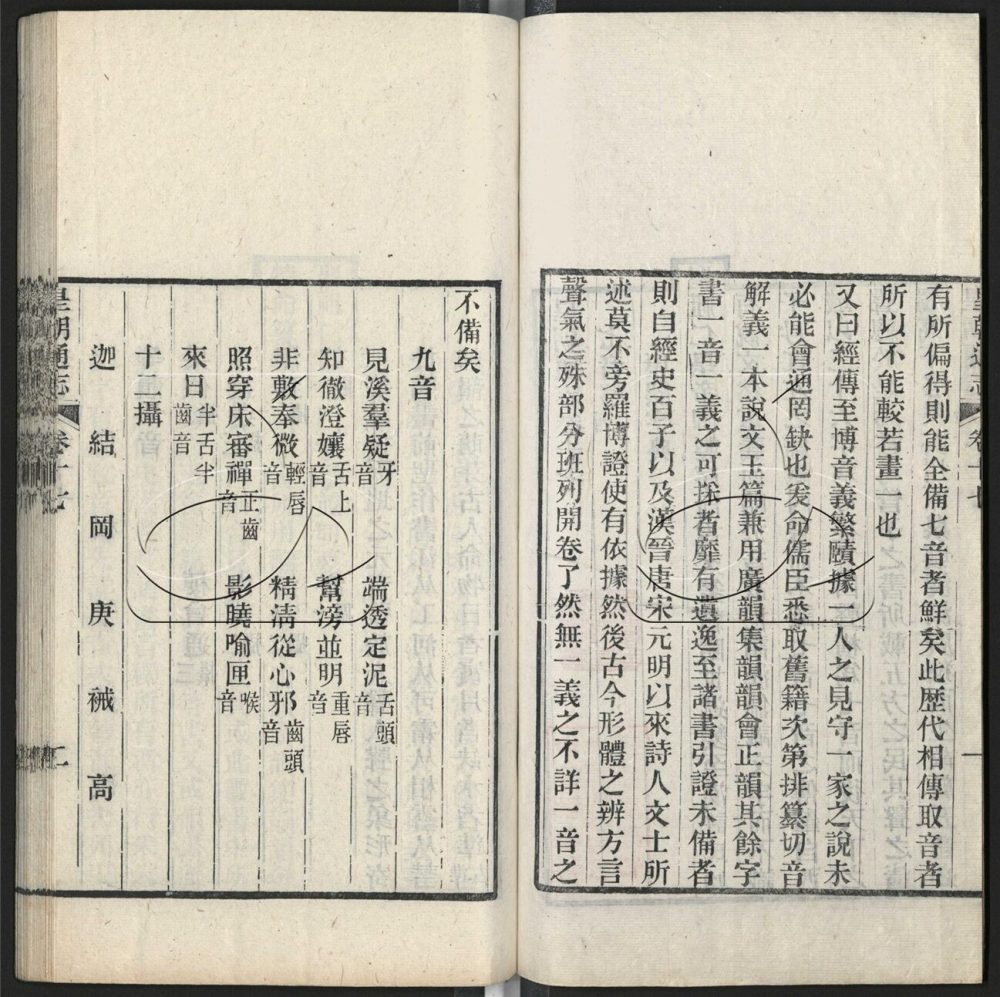 有所偏得則能全備七音者鮮矣此歴代相傳取音者
所以不能較若畫一也
又曰經傳至博音義繁賾據一人之見守一家之說未
必能會通罔缺也爰命儒臣悉取舊籍次第排纂切音
解義一本說文玉篇兼用廣韻集韻韻會正韻其餘字
書一音一義之可採者靡有遺逸至諸書引證未備者
則自經史百子以及漢晉唐宋元明以來詩人文士所
述莫不旁羅博證使有依據然後古今形體之辨方言
聲氣之殊部分班列開卷了然無一義之不詳一音之
不備矣
九音
見溪羣疑牙音 端透定泥舌頭音
知徹澄孃舌上音 幫滂並明重唇音
非敷奉微輕唇音 精淸從心邪齒頭音
照穿床審禪正齒音 影曉喻匣喉音
來日半舌半齒音
十二攝
迦 結 岡 庚 裓 高
皇朝通志 卷十七 二